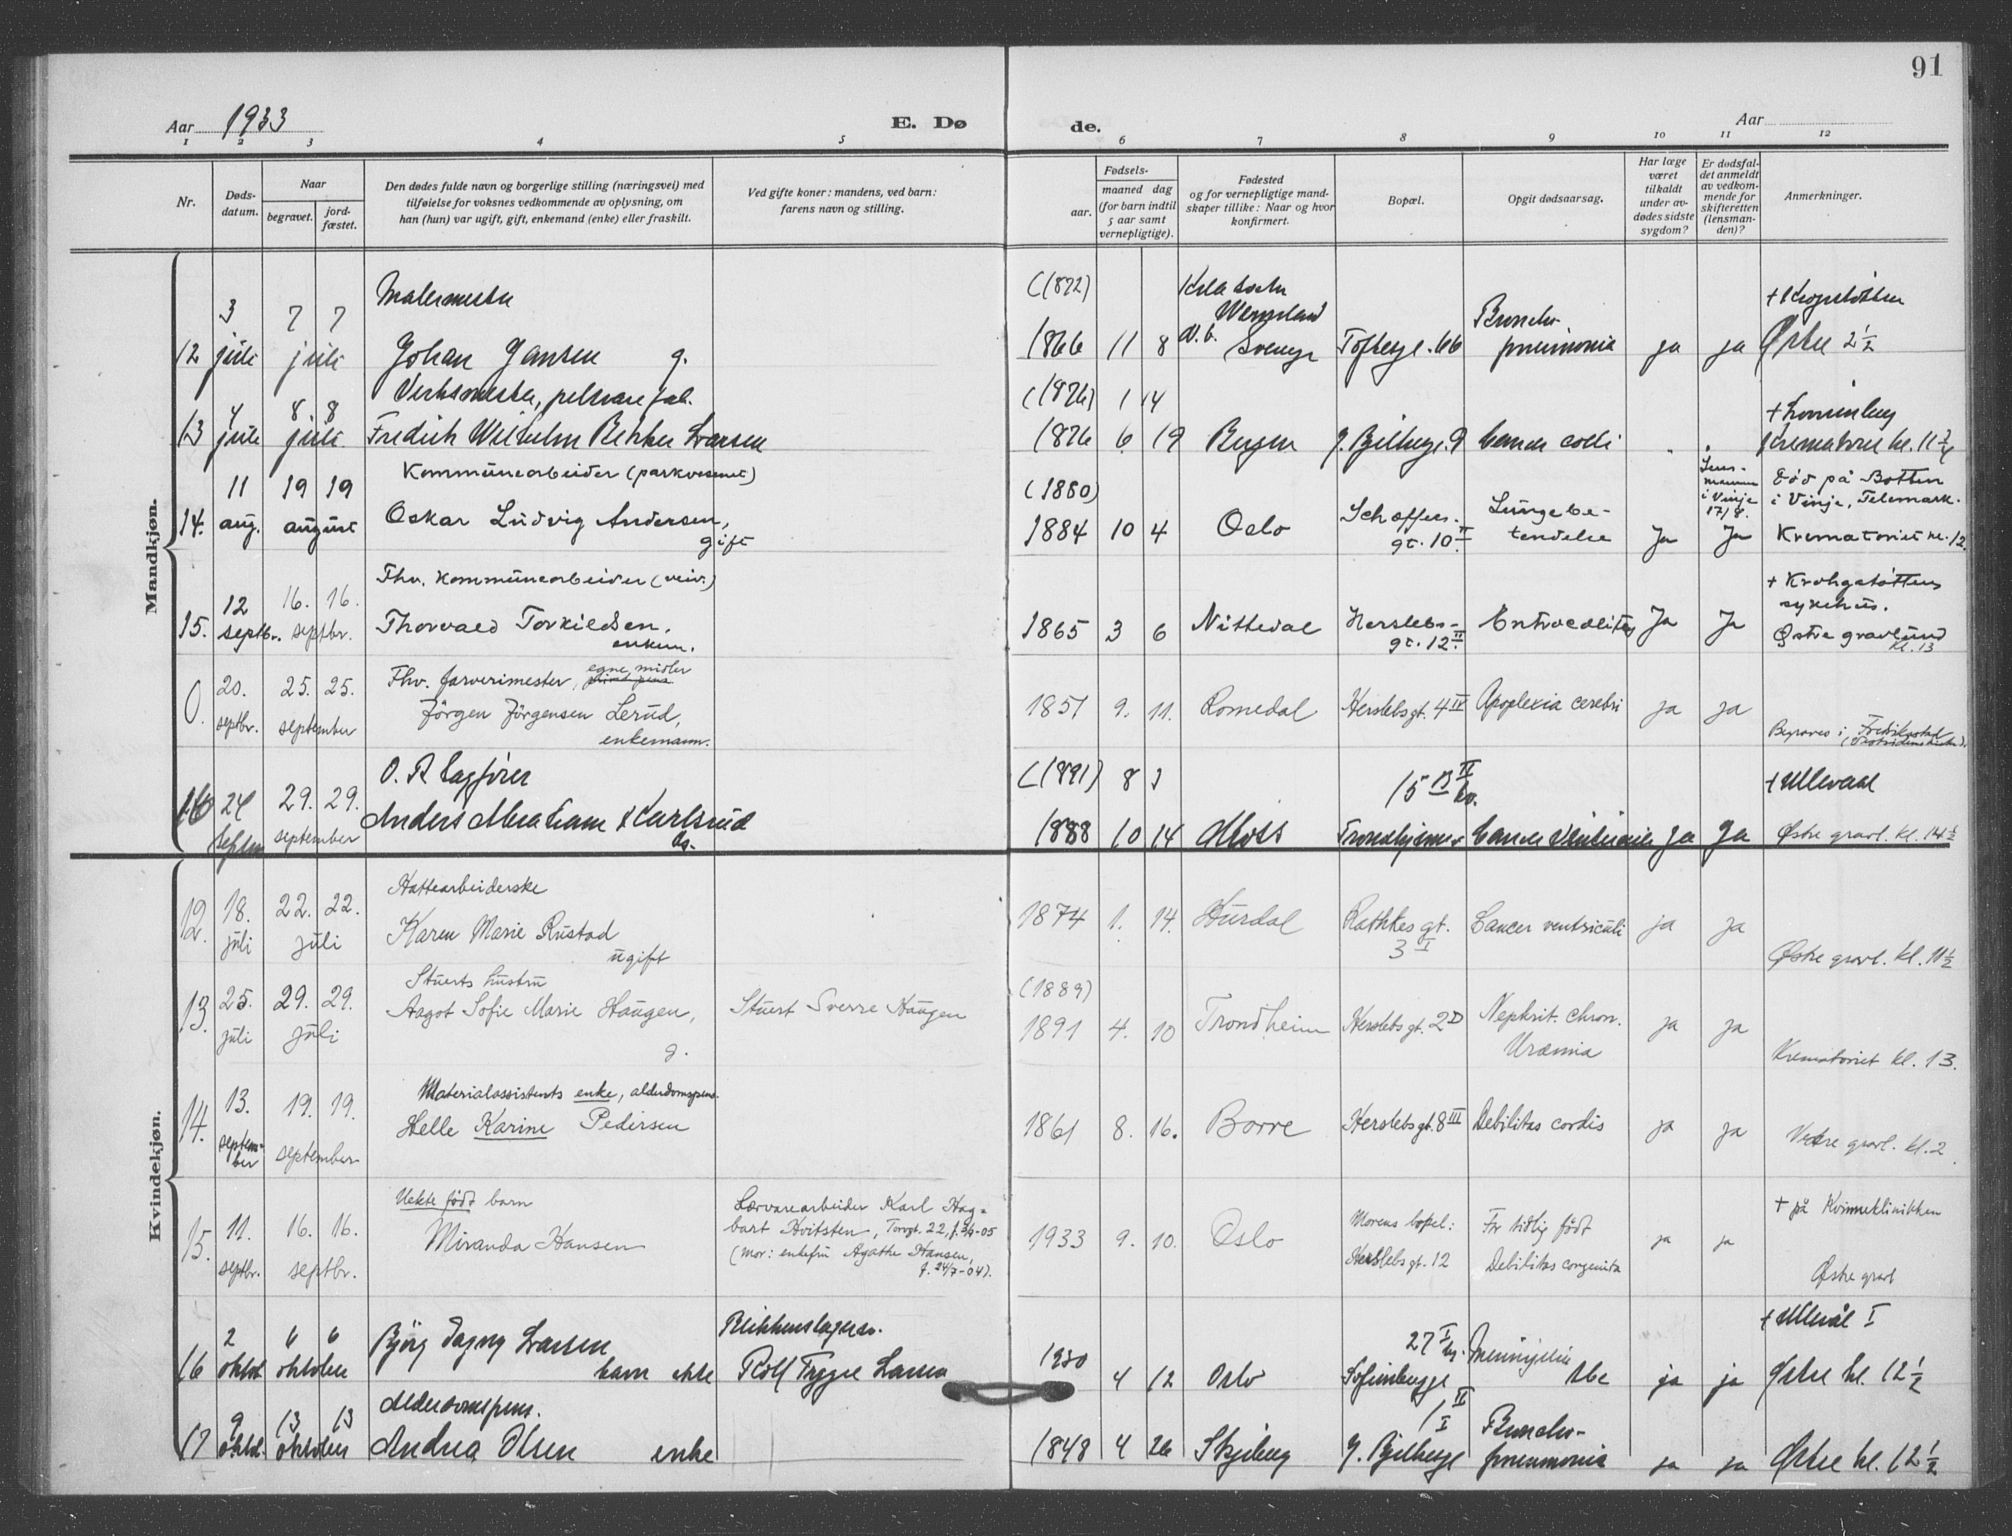 91
Aar 1933
E. Dø
de.
Aar
1 2 3 4 5 6 7 8 9 10 11 12
Nr.
Døds-
datum.
Naar
begravet.
jord-
fæstet.
Den dødes fulde navn og borgerlige stilling (næringsvei) med
tilføielse for voksnes vedkommende av oplysning, om
han (hun) var ugift, gift, enkemand (enke) eller fraskilt.
Ved gifte koner: mandens, ved barn:
farens navn og stilling.
aar.
Fødsels-
maaned dag
(for barn indtil
5 aar samt
vernepligtige).
Fødested
og for vernepligtige mand-
skaper tillike: Naar og hvor
konfirmert.
Bopæl.
Opgit dødsaarsag.
Har læge
været
tilkaldt
under av-
dødes sidste
sygdom?
Er dødsfal-
det anmeldt
av vedkom-
mende for
skifteretten
(lensman-
den)?
Anmerkninger.
Mandkjøn.
Malermester (1872)
3 7 7
Wermland
Broncho-
12 juli juli Johan Jansen g. 1866 11 8 Sverige Toftesg. 66 pneumonia ja ja Østre 2 1/2
4 8 8 (1876) 1 14
13 juli juli Fredrik Wilhelm Larsen 1876 6 19 Bergen J. Bjelkesg. 9 Cancer coli Krematoriet kl. 11
Kommunearbeider (parkvesenet)
11 19 19 (1880)
Lens-
mannen
i Vinje
17/8.
Død på Botten
i Vinje, Telemark.
14. aug. august Oskar Ludvig Andersen,
gift
1884 10 4 Oslo
Schoffers-
gt. 10 II
Lungebe-
tendelse
Ja Ja Krematoriet kl. 12.
Fhv. kommunearbeider (veiv.)
12 16. 16.
15. septbr. septbr. Thorvald Torkildsen,
enkem.
1865 3 6 Nittedal
Herslebs-
gt. 12 II
Ja Ja
+ Krohgstøttens
sykehus.
Østre gravlund
kl. 13
Fhv. farverimester, egne midler
20. 25. 25.
0. septbr. september Jörgen Jörgensen Lerud,
enkemann.
1851 9. 11. Romedal Herslebsgt. 4 IV Apoplexia cerebri ja ja
Begraves i Fredrikstad
(1891) 8 3
15 B II
+ Ullevaal
16 24 29. 29.
september
Anders Abraham Karlsrud
1888 10 14 Moss Cancer ja ja Østre gravl. kl. 14 1/2
Kvindekjøn.
Hattearbeiderske
12. 18. 22. 22.
juli juli
Karen Marie Rustad
ugift
1874 1. 14. Hurdal
Rathkes gt.
3 I
Cancer ventriculi ja ja
Østre gravl. kl. 11 1/2
Stuerts hustru
13. 25. 29. 29.
juli juli
Aagot Sofie Marie Haugen,
g.
Stuert Sverre Haugen
(1889)
1891 4. 10 Trondheim Herslebsgt. 2 D
Nephrit. chron.
Uræmia
ja ja
Krematoriet kl. 13.
Materialassistents enke, alderdomspens.
14. 13. 19. 19.
septem-
ber
september
Helle Karine Pedersen
1861 8. 16. Borre Herslebsgt. 8 III Debilitas cordis ja ja
Vestre gravl. kl. 2
Uekte født barn
15. 11. 16. 16.
septbr. septbr.
Miranda Hansen
Lærvarearbeider Karl Hag-
bart Hvitsten, Torvgt. 22, f. 3/4-05
(mor: enkefru Agathe Hansen,
f. 24/7-04).
1933 9. 10. Oslo
Morens bopel:
Herslebsgt. 12
For tidlig født
Debilitas congenita
ja ja
+ på Kvinneklinikken
Østre gravl
2 6 6
Blikkenslagersv.
27 I
+ Ullevål I
16 oktob. oktober Bjørg Dagny Larsen
barn ekte
Rolf Trygve Larsen
1930 4 12 Oslo Sofienbergg. ja ja Østre kl. 12 1/2
Alderdomspens.
9 13 13
II
1 I
Broncho-
17 oktob. oktober Andrea Olsen enke 1848 4 26 Skjeberg J. Bjelkesg. pneumonia ja ja Østre kl. 12 1/2